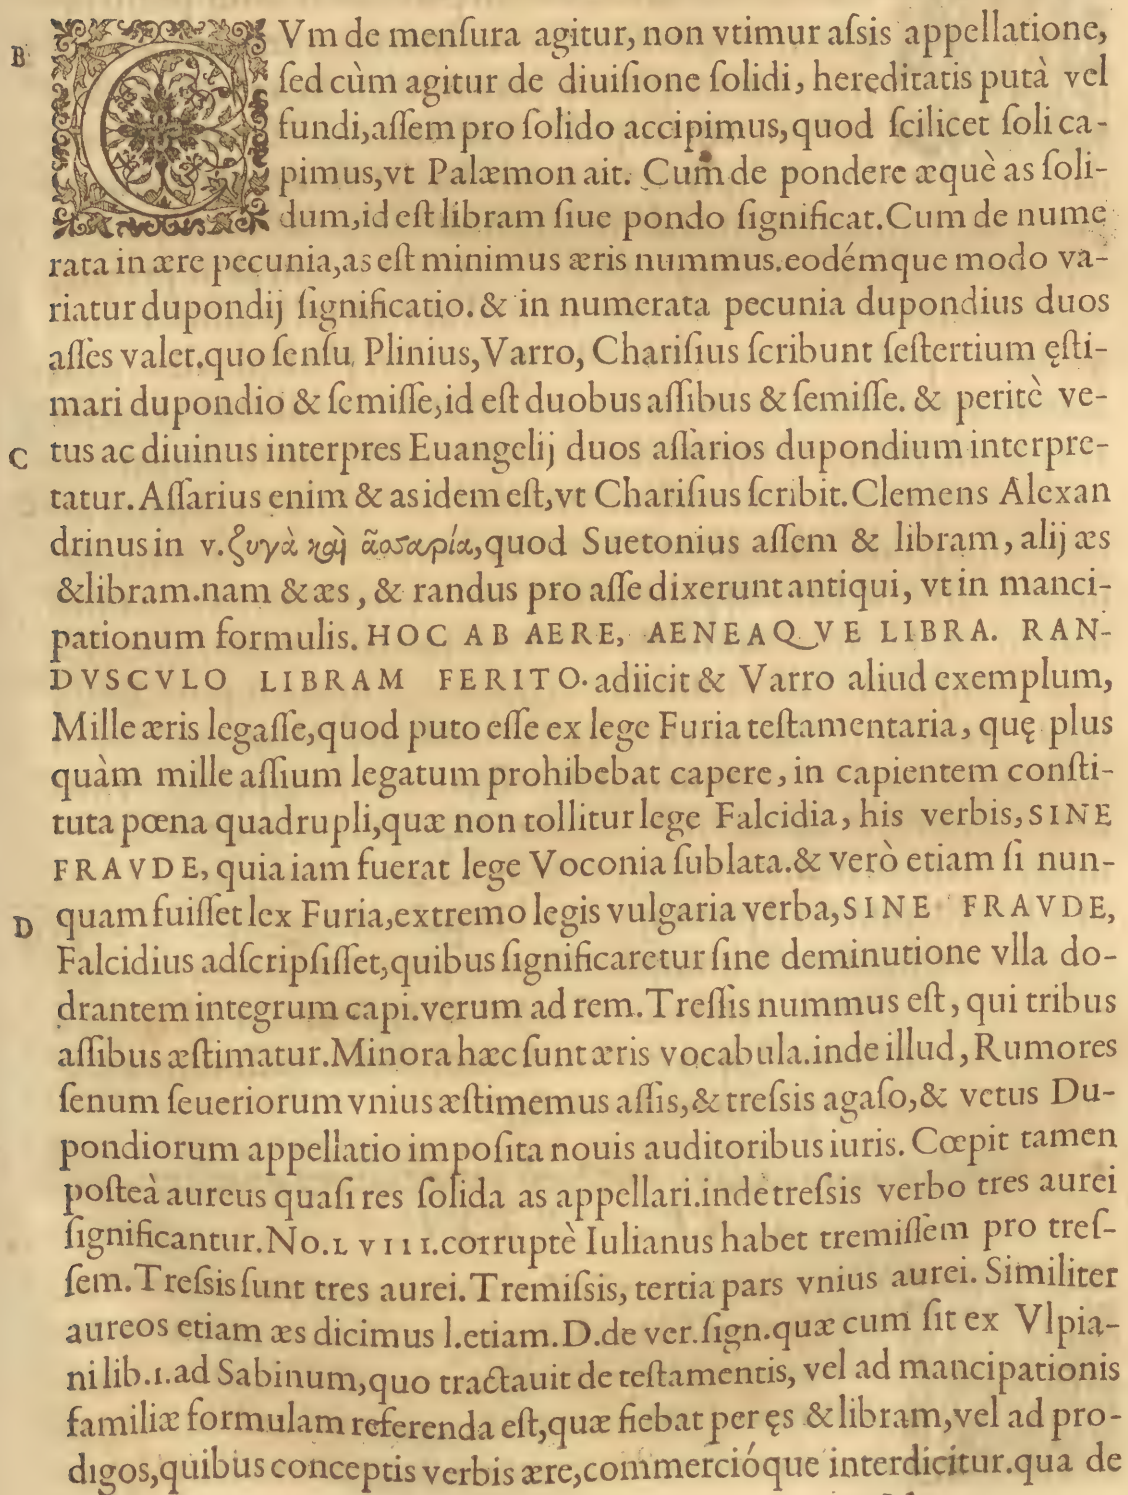 B CVm de menſura agitur, non vtimur aſsis appellatione,
ſed cùm agitur de diuiſione ſolidi, hereditatis putà vel
fundi, aſſem pro ſolido accipimus, quod ſcilicet ſoli ca-
pimus, vt Palæmon ait. Cum de pondere æquè as ſoli-
dum, id eſt libram ſiue pondo ſignificat. Cum de nume
rata in ære pecunia, as eſt minimus æris nummus. eodémque modo va-
riatur dupondij ſignificatio. & in numerata pecunia dupondius duos
aſſes valet. quo ſenſu Plinius, Varro, Chariſius ſcribunt ſeſtertium ęſti-
mari dupondio & ſemiſſe, id eſt duobus aſſibus & ſemiſſe. & peritè ve-
C tus ac diuinus interpres Euangelij duos aſſarios dupondium interpre-
tatur. Aſſarius enim & as idem eſt, vt Chariſius ſcribit. Clemens Alexan
drinus in v. ζυγὰ καὶ ἀοσαρία, quod Suetonius aſſem & libram, alij æs
& libram. nam & æs, & randus pro aſſe dixerunt antiqui, vt in manci-
pationum formulis. HOC AB AERE, AENEAQVE LIBRA. RAN-
DVSCVLO LIBRAM FERITO. adiicit & Varro aliud exemplum,
Mille æris legaſſe, quod puto eſſe ex lege Furia teſtamentaria, quę plus
quàm mille aſſium legatum prohibebat capere, in capientem conſti-
tuta pœna quadrupli, quæ non tollitur lege Falcidia, his verbis, SINE
FRAVDE, quia iam fuerat lege Voconia ſublata. & verò etiam ſi nun-
D quam fuiſſet lex Furia, extremo legis vulgaria verba, SINE FRAVDE,
Falcidius adſcripſiſſet, quibus ſignificaretur ſine deminutione vlla do-
drantem integrum capi. verum ad rem. Treſſis nummus eſt, qui tribus
aſſibus æſtimatur. Minora hæc ſunt æris vocabula. inde illud, Rumores
ſenum ſeueriorum vnius æſtimemus aſſis, & treſsis agaſo, & vetus Du-
pondiorum appellatio impoſita nouis auditoribus iuris. Cœpit tamen
poſteà aureus quaſi res ſolida as appellari. inde treſsis verbo tres aurei
ſignificantur. No. LVIII. corruptè Iulianus habet tremiſſem pro treſ-
ſem. Treſsis ſunt tres aurei. Tremiſsis, tertia pars vnius aurei. Similiter
aureos etiam æs dicimus l. etiam. D. de ver. ſign. quæ cum ſit ex Vlpia-
ni lib. 1. ad Sabinum, quo tractauit de teſtamentis, vel ad mancipationis
familiæ formulam referenda eſt, quæ fiebat per ęs & libram, vel ad pro-
digos, quibus conceptis verbis ære, commercióque interdicitur. qua de